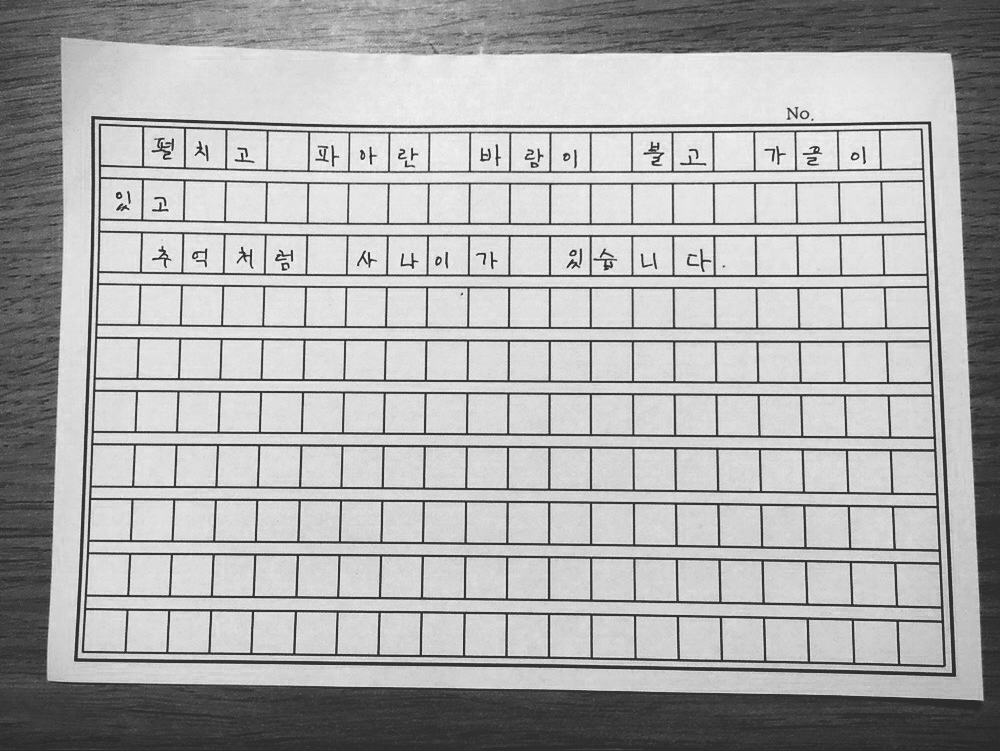 No.
펼치고 파아란 바람이 불고 가골이
있고
추억처럼 사나이가 있습니다.